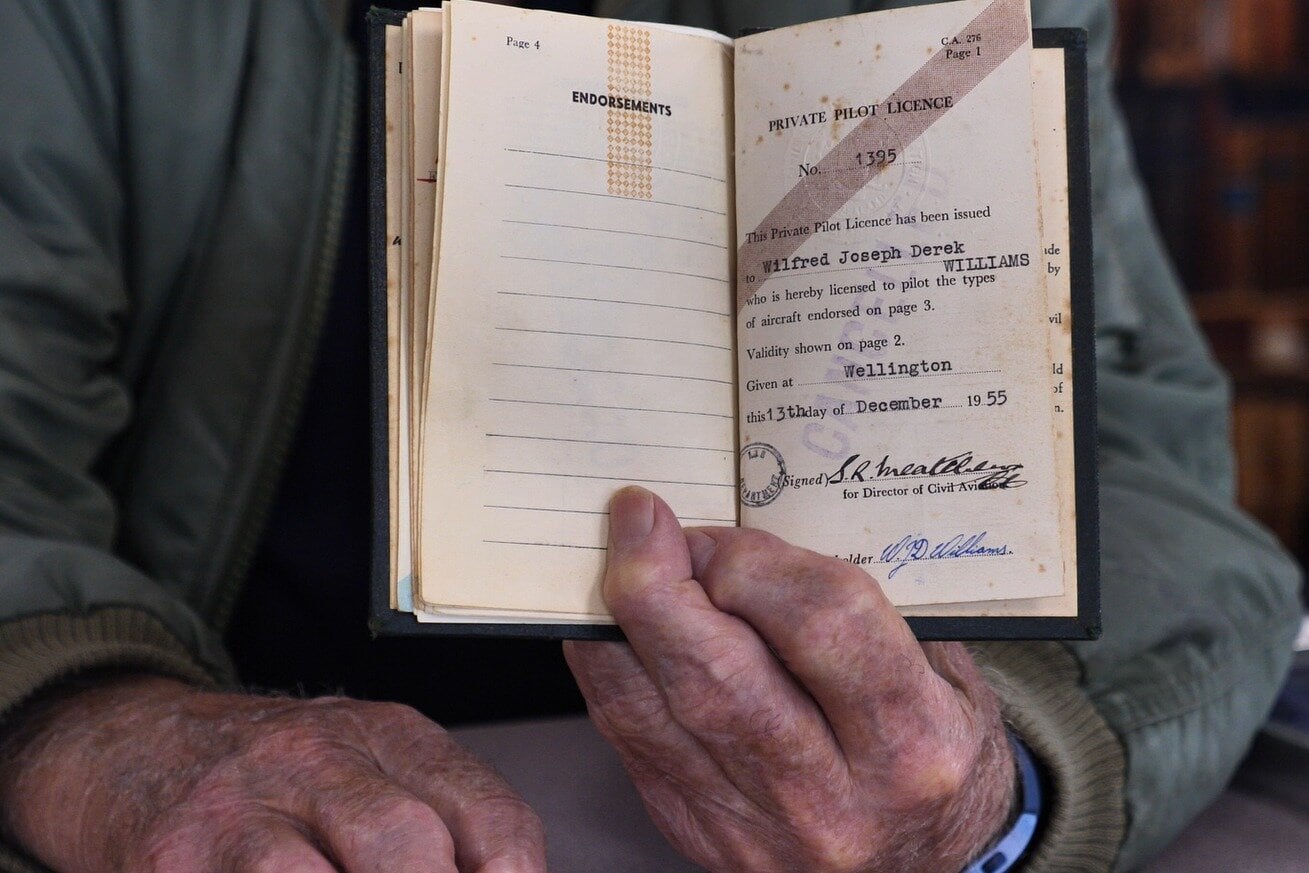 Page 4
ENDORSEMENTS
C.A. 276
Page 1
PRIVATE PILOT LICENCE
No. 1395
This Private Pilot Licence has been issued
to Wilfred Joseph Derek
WILLIAMS
who is hereby licensed to pilot the types
of aircraft endorsed on page 3.
Validity shown on page 2.
Given at Wellington
this 13th day of December 1955
Signed
for Director of Civil Aviation
older W J D Williams.
DEPARTMENT
by